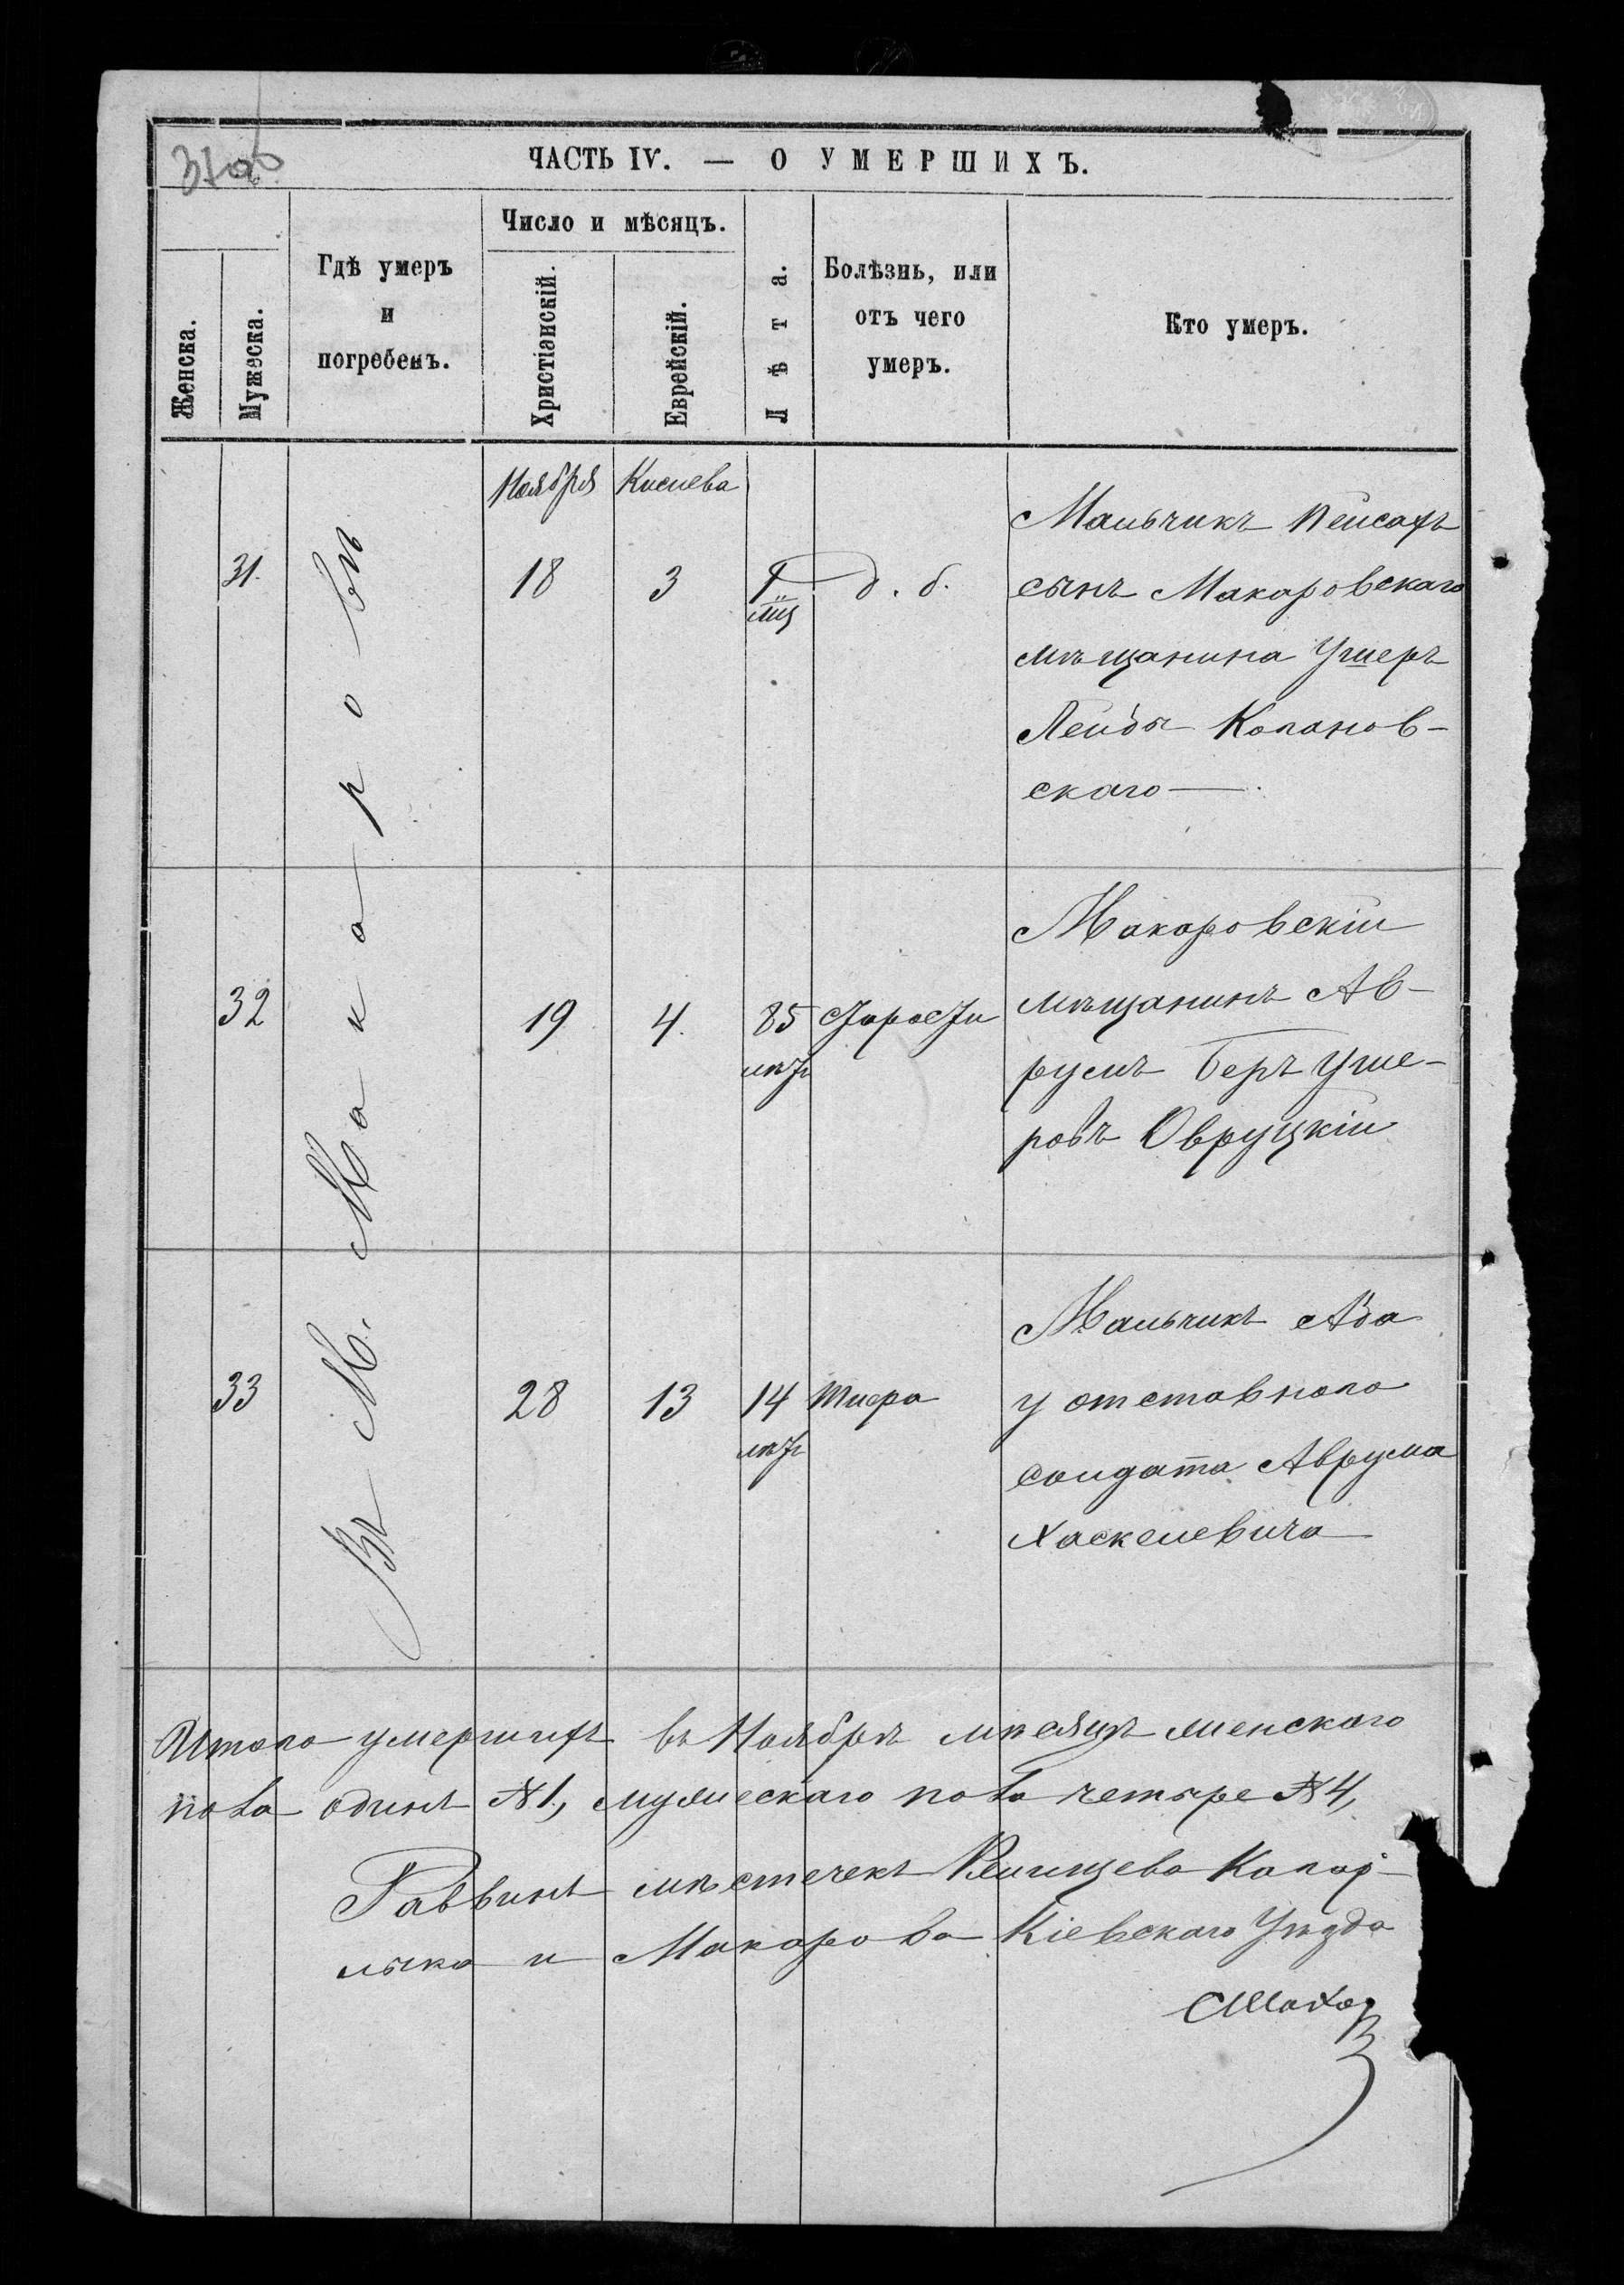 ЧАСТЬ IV. — О УМЕРШИХЪ.
Женска.
Мужеска.
Гдѣ умеръ
и
погребенъ.
Число и мѣсяцъ.
Христіанскій.
Еврейскій.
Лѣта.
Болѣзнь, или
отъ чего
умеръ.
Кто умеръ.
Въ М. Макаровъ
Ноября Кислева
31. 18 3 1 мц д. б.
Мальчикъ Пейсахъ
сынъ Макаровскаго
мѣщанина Ушеръ
Лейбы Капанов-
скаго —
32 19 4. 85 лѣтъ Старости
Макаровскій
мѣщанинъ Ав-
румъ Беръ Уше-
ровъ Овруцкій
33 28 13 14 лѣтъ Тифа
Мальчикъ Аба
у отставного
солдата Аврума
Хаскелевича
Итого умершихъ въ Ноябрѣ мѣсяцѣ женского
пола одинъ №1, мужескаго пола четыре №4,
Раввинъ мѣстечекъ Рожищева Копы-
лыка и Макарова Кіевскаго Уѣзда